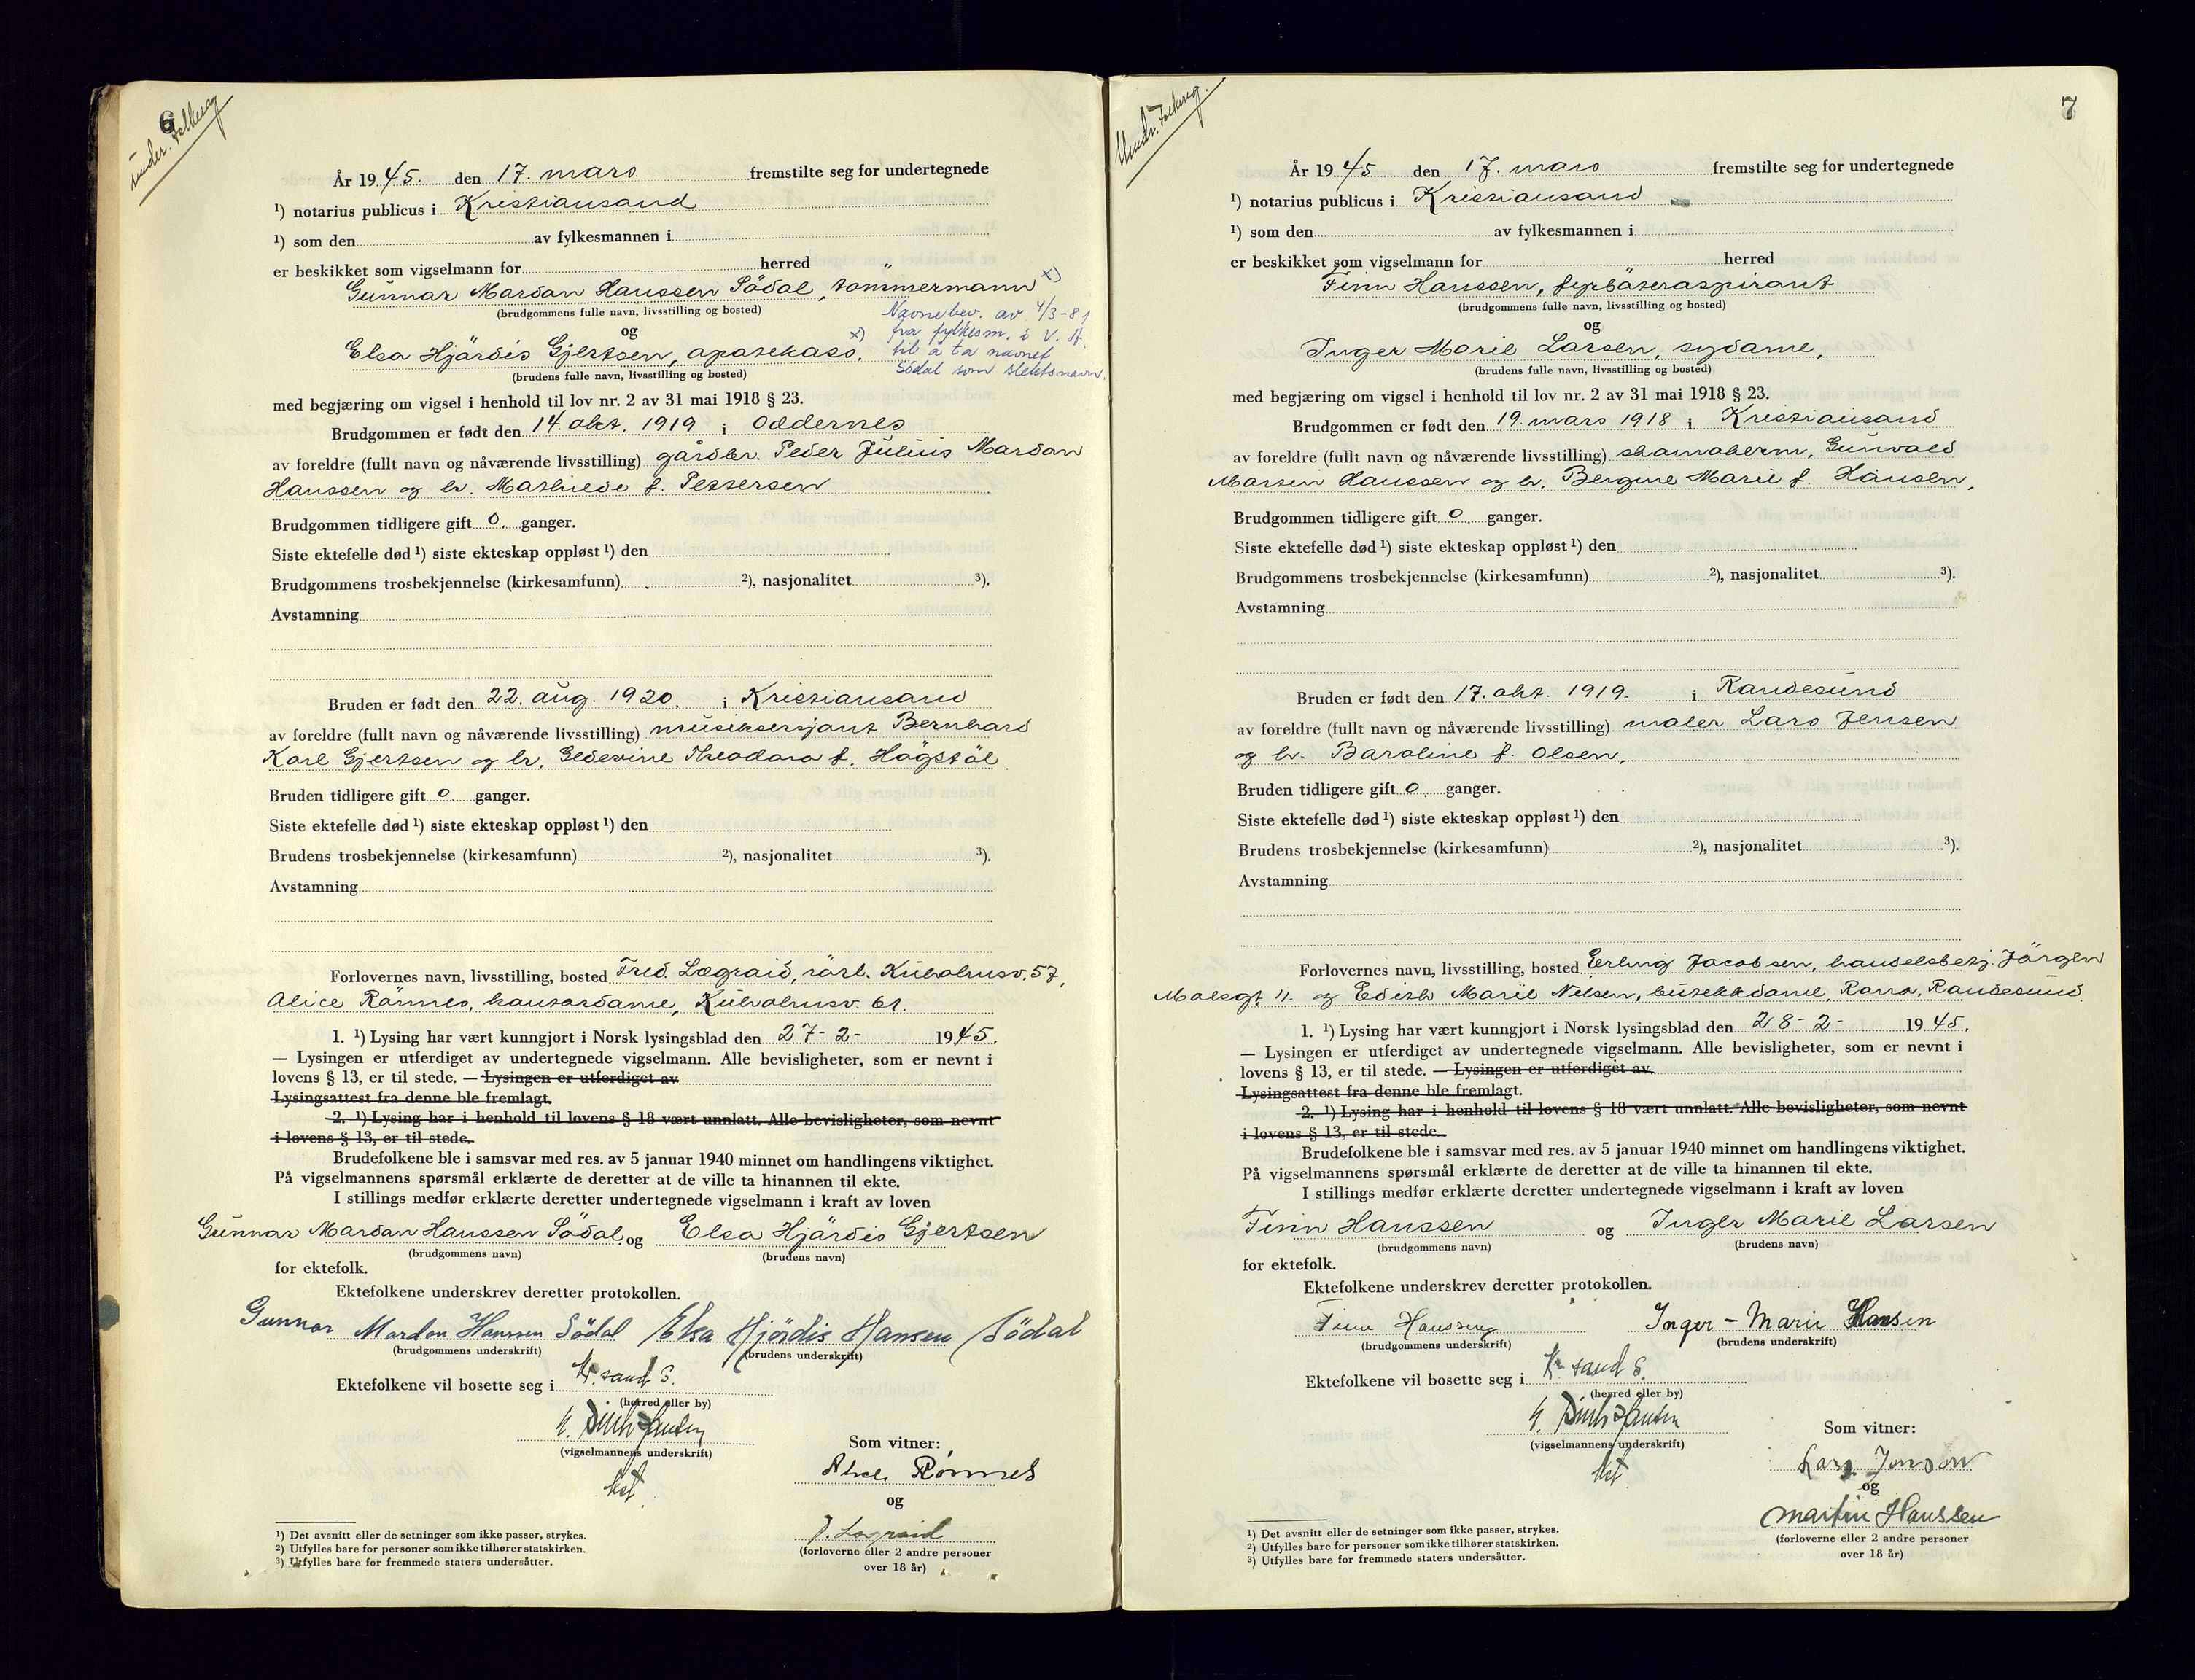 6
under. Folkereg
År 1945. den 17. mars fremstilte seg for undertegnede
¹) notarius publicus i Kristiansand
¹) som den av fylkesmannen i
er beskikket som vigselmann for herred
Gunnar Mardon Hanssen Södal, tömmermann x)
(brudgommens fulle navn, livsstilling og bosted)
og
x) Navnebev. av 4/3-81
fra fylkesm. i V. A.
til å ta navnet
Södal som slektsnavn.
Elsa Hjördis Gjertsen, apotekass.
(brudens fulle navn, livsstilling og bosted)
med begjæring om vigsel i henhold til lov nr. 2 av 31 mai 1918 § 23.
Brudgommen er født den 14. okt. 1919 i Oddernes
av foreldre (fullt navn og nåværende livsstilling) gårdbr. Peder Julius Mardon
Hanssen og h. Mathilde f. Pettersen
Brudgommen tidligere gift 0. ganger.
Siste ektefelle død ¹) siste ekteskap oppløst ¹) den
Brudgommens trosbekjennelse (kirkesamfunn) ²), nasjonalitet ³).
Avstamning
Bruden er født den 22. aug. 1920. i Kristiansand
av foreldre (fullt navn og nåværende livsstilling) musiksersjant Bernhard
Karl Gjertsen og h. Gedevine Theodora f. Högstöl
Bruden tidligere gift 0 ganger.
Siste ektefelle død ¹) siste ekteskap oppløst ¹) den
Brudens trosbekjennelse (kirkesamfunn) ²), nasjonalitet ³).
Avstamning
Forlovernes navn, livsstilling, bosted Fred. Lægraid, rörl. Kuholmsv. 57,
Alice Rönnes, kontordame, Kuholmsv. 61.
1. ¹) Lysing har vært kunngjort i Norsk lysingsblad den 27-2- 1945.
— Lysingen er utferdiget av undertegnede vigselmann. Alle bevisligheter, som er nevnt i
lovens § 13, er til stede. — Lysingen er utferdiget av
Lysingsattest fra denne ble fremlagt.
2. ¹) Lysing har i henhold til lovens § 18 vært unnlatt. Alle bevisligheter, som nevnt
i lovens § 13, er til stede.
Brudefolkene ble i samsvar med res. av 5 januar 1940 minnet om handlingens viktighet.
På vigselmannens spørsmål erklærte de deretter at de ville ta hinannen til ekte.
I stillings medfør erklærte deretter undertegnede vigselmann i kraft av loven
Gunnar Mardon Hanssen Södal og Elsa Hjördis Gjertsen
(brudgommens navn) (brudens navn)
for ektefolk.
Ektefolkene underskrev deretter protokollen.
Gunnar Mardon Hanssen Södal Elsa Hjördis Hansen Södal
(brudgommens underskrift) (brudens underskrift)
Ektefolkene vil bosette seg i Kr.sand S.
(herred eller by)
(vigselmannens underskrift)
kst.
Som vitner:
Alice Rönnes
og
F. Lægraid
(forloverne eller 2 andre personer
over 18 år)
¹) Det avsnitt eller de setninger som ikke passer, strykes.
²) Utfylles bare for personer som ikke tilhører statskirken.
³) Utfylles bare for fremmede staters undersåtter.
7
Undr. Folkereg.
År 1945 den 17. mars fremstilte seg for undertegnede
¹) notarius publicus i Kristiansand
¹) som den av fylkesmannen i
er beskikket som vigselmann for herred
Finn Hanssen, fyrböteraspirant
(brudgommens fulle navn, livsstilling og bosted)
og
Inger Marie Larsen, sydame,
(brudens fulle navn, livsstilling og bosted)
med begjæring om vigsel i henhold til lov nr. 2 av 31 mai 1918 § 23.
Brudgommen er født den 19. mars 1918 i Kristiansand
av foreldre (fullt navn og nåværende livsstilling) skomakerm. Gunvald
Morten Hanssen og h. Bergine Marie f. Hansen.
Brudgommen tidligere gift 0. ganger.
Siste ektefelle død ¹) siste ekteskap oppløst ¹) den
Brudgommens trosbekjennelse (kirkesamfunn) ²), nasjonalitet ³).
Avstamning
Bruden er født den 17. okt. 1919. i Randesund
av foreldre (fullt navn og nåværende livsstilling) maler Lars Jensen
og h. Baroline f. Olsen.
Bruden tidligere gift 0. ganger.
Siste ektefelle død ¹) siste ekteskap oppløst ¹) den
Brudens trosbekjennelse (kirkesamfunn) ²), nasjonalitet ³).
Avstamning
Forlovernes navn, livsstilling, bosted Erling Jacobsen, handelsbetj. Jörgen
Moesgt 11. og Edith Marie Nilsen, butikkdame, Rona, Randesund.
1. ¹) Lysing har vært kunngjort i Norsk lysingsblad den 28-2- 1945.
— Lysingen er utferdiget av undertegnede vigselmann. Alle bevisligheter, som er nevnt i
lovens § 13, er til stede. — Lysingen er utferdiget av
Lysingsattest fra denne ble fremlagt.
2. ¹) Lysing har i henhold til lovens § 18 vært unnlatt. Alle bevisligheter, som nevnt
i lovens § 13, er til stede.
Brudefolkene ble i samsvar med res. av 5 januar 1940 minnet om handlingens viktighet.
På vigselmannens spørsmål erklærte de deretter at de ville ta hinannen til ekte.
I stillings medfør erklærte deretter undertegnede vigselmann i kraft av loven
Finn Hanssen og Inger Marie Larsen
(brudgommens navn) (brudens navn)
for ektefolk.
Ektefolkene underskrev deretter protokollen.
Finn Hanssen Inger - Marie Hansen
(brudgommens underskrift) (brudens underskrift)
Ektefolkene vil bosette seg i Kr.sand S.
(herred eller by)
(vigselmannens underskrift)
kst
Som vitner:
Lars Jenson
og
Martin Hanssen
(forloverne eller 2 andre personer
over 18 år)
¹) Det avsnitt eller de setninger som ikke passer, strykes.
²) Utfylles bare for personer som ikke tilhører statskirken.
³) Utfylles bare for fremmede staters undersåtter.